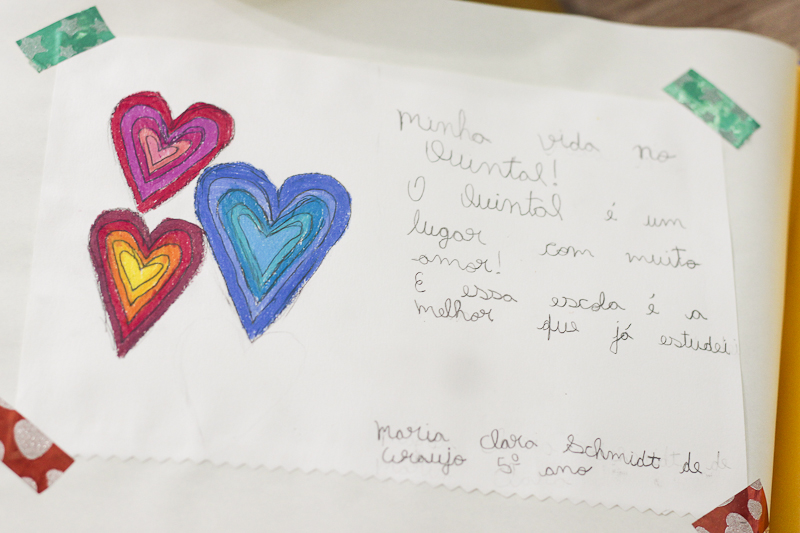 minha vida no
Quintal!
O Quintal é um
lugar com muito
amor!
E essa escola é a
melhor que já estudei
maria clara Schmidt de
Araujo 5º ano